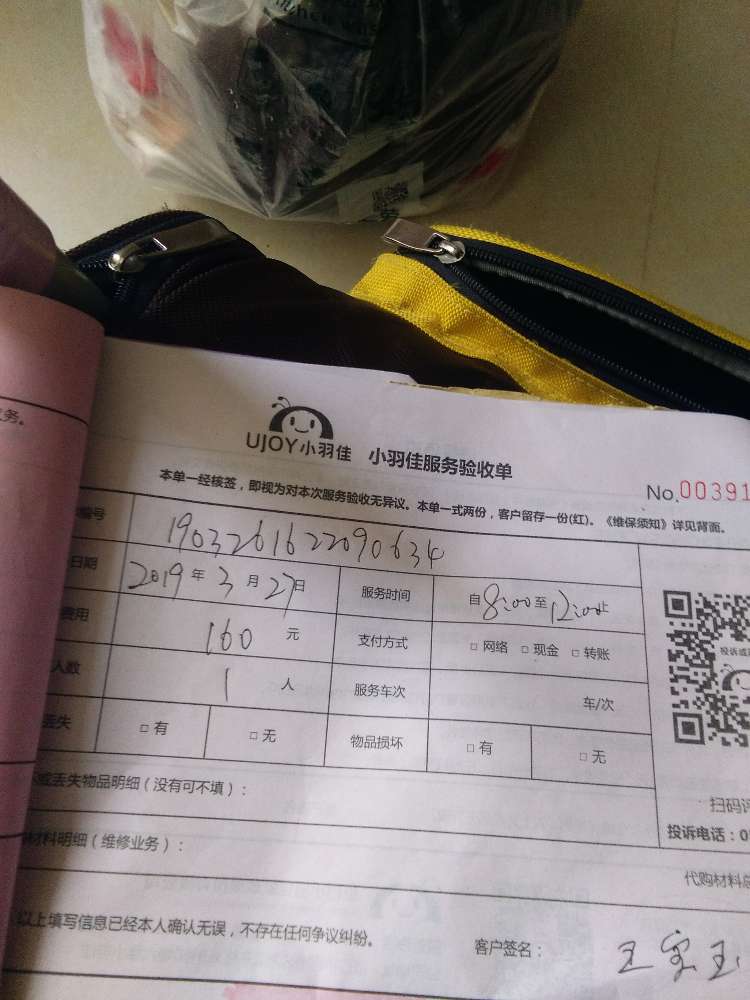 务。
UJOY小羽佳 小羽佳服务验收单
No.00391
本单一经核签，即视为对本次服务验收无异议。本单一式两份，客户留存一份(红)。《维保须知》详见背面。
编号 1903261622090634
日期 2019年3月27日 服务时间 自8:00至12:00止
费用 160元 支付方式 □ 网络 □ 现金 □ 转账
人数 1人 服务车次 车/次
丢失 □ 有 □ 无 物品损坏 □ 有 □ 无
投诉或
扫码评
投诉电话：0
或丢失物品明细（没有可不填）：
材料明细（维修业务）：
代购材料总
以上填写信息已经本人确认无误，不存在任何争议纠纷。
客户签名： 王宝玉